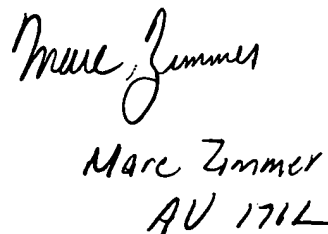 Marc, Zimmer
Marc Zimmer
AU 1712